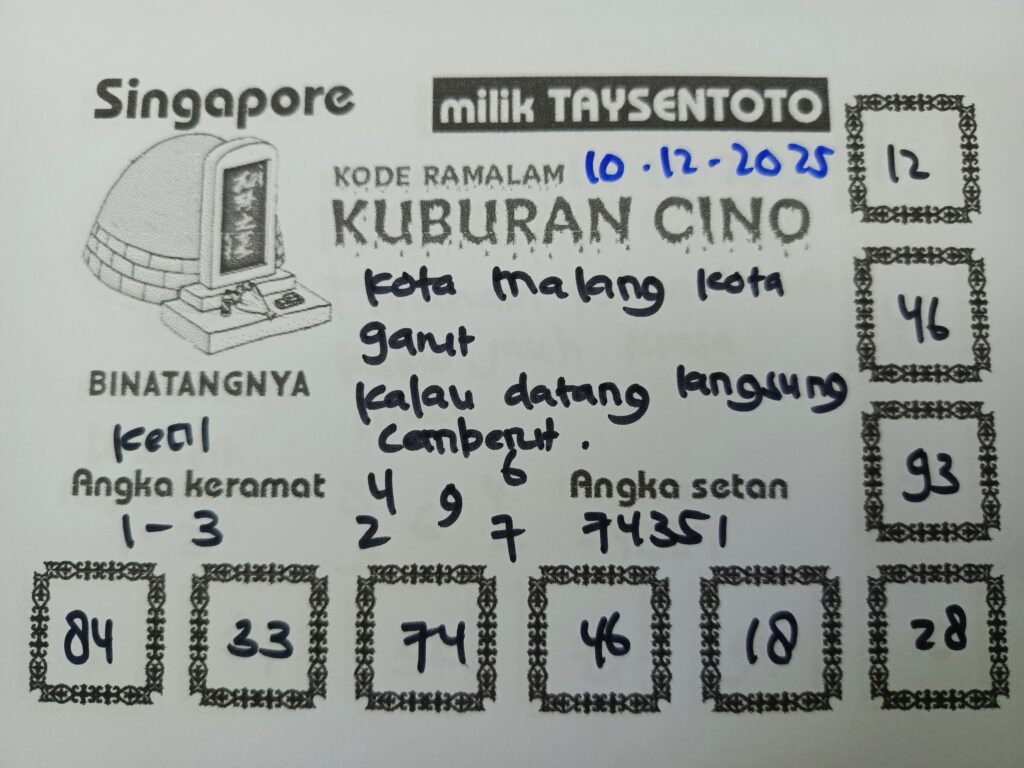 Singapore
milik TAYSENTOTO
KODE RAMALAM 10.12-2025
KUBURAN CINO
kota malang kota
garut
kalau datang langsung
cemberut.
BINATANGNYA
kecil
Angka keramat
1-3
4 9 6
2 7
Angka setan
74351
12
46
93
84 33 74 46 18 28